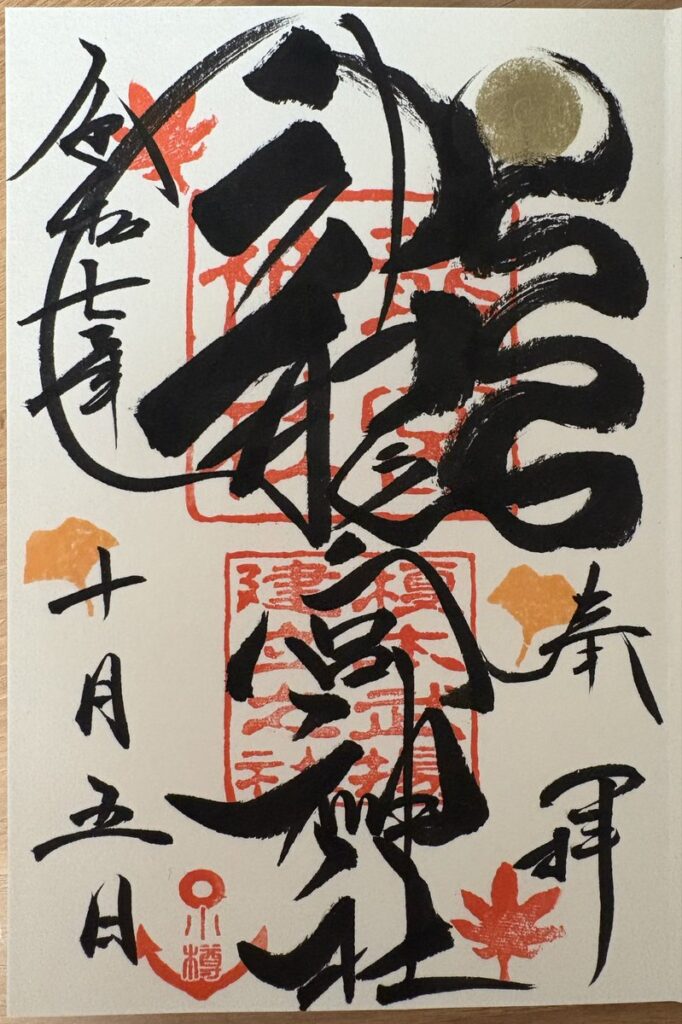 奉拝
龍宮神社
龍宮
神社
榎本武揚
建立之社
令和七年
十月五日
小樽